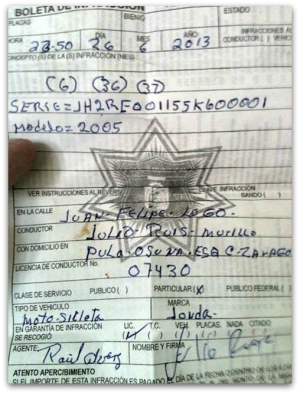 BOLETA DE INFRACCIÓN
PLACAS BIENIO ESTADO
HORA DIA MES AÑO INFRACCIONES AL
23-50 26 6 2013 CONDUCTOR ( ) VEHIC
CONCEPTO (S) DE LA (S) INFRACCIÓN (NES)
(6) (36) (37)
SERIE=JH2RE001155K600001
modelo=2005
VER INSTRUCCIONES AL REVERS CLAVE INFRACCIÓN
EN LA CALLE JUAN-FELIPE
CONDUCTOR JULIO RUIS-MURILLO
CON DOMICILIO EN OSUNA ESQ C-ZARAGO
LICENCIA DE CONDUCTOR No. 07430
CLASE DE SERVICIO PUBLICO ( ) PARTICULAR (X) PUBLICO FEDERAL ( )
TIPO DE VEHICULO MARCA
MotoSikleta Jonda
EN GARANTIA DE INFRACCIÓN LIC. T.C. VEH. PLACAS. NADA CITADO
SE RECOGIÓ
AGENTE NOMBRE Y FIRMA
Raúl
ATENTO APERCIBIMIENTO
SI EL IMPORTE DE ESTA INFRACCIÓN ES PAGADO DE LA FECHA